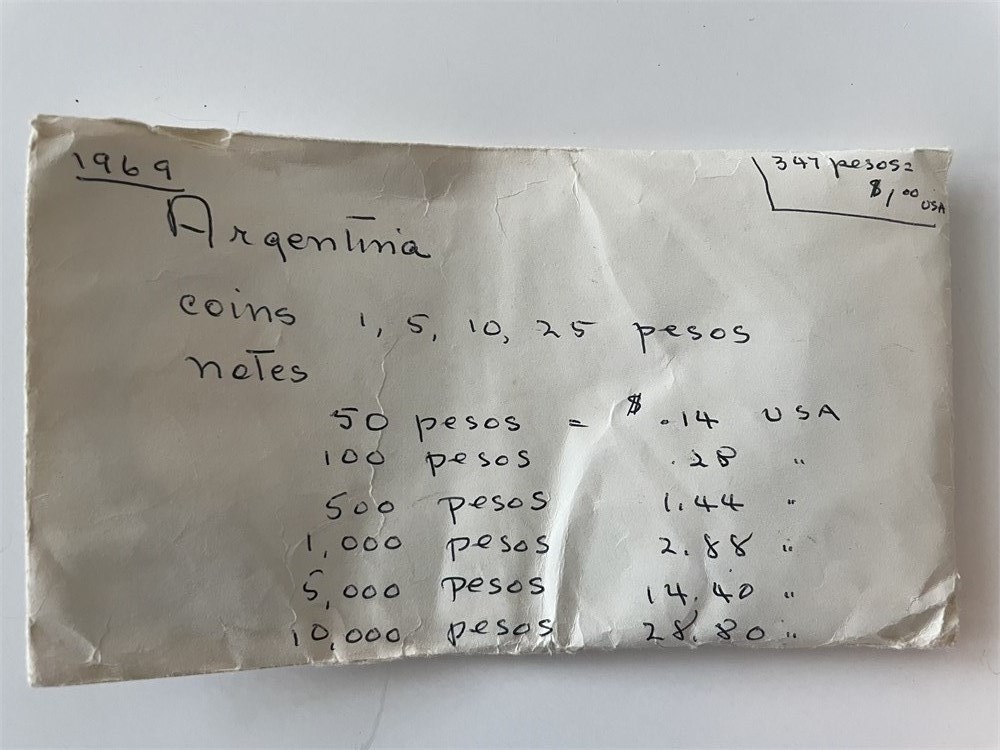 1969
347 pesos=
$1.00 USA
Argentina
coins 1, 5, 10, 25 pesos
notes
50 pesos = $.14 USA
100 pesos .28 "
500 pesos 1.44 "
1,000 pesos 2.88 "
5,000 pesos 14.40 "
10,000 pesos 28.80 "